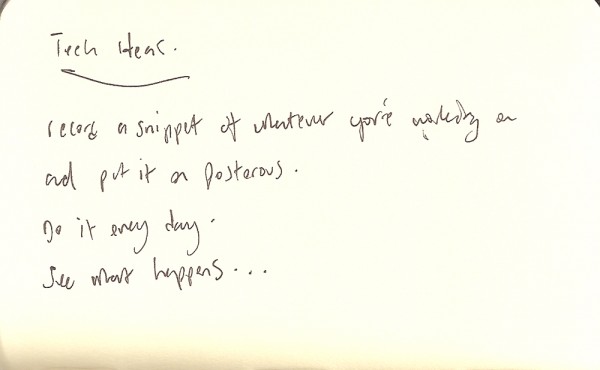 Tech Ideas.
record a snippet of whatever you're working on
and put it on Posterous.
Do it every day.
See what happens...